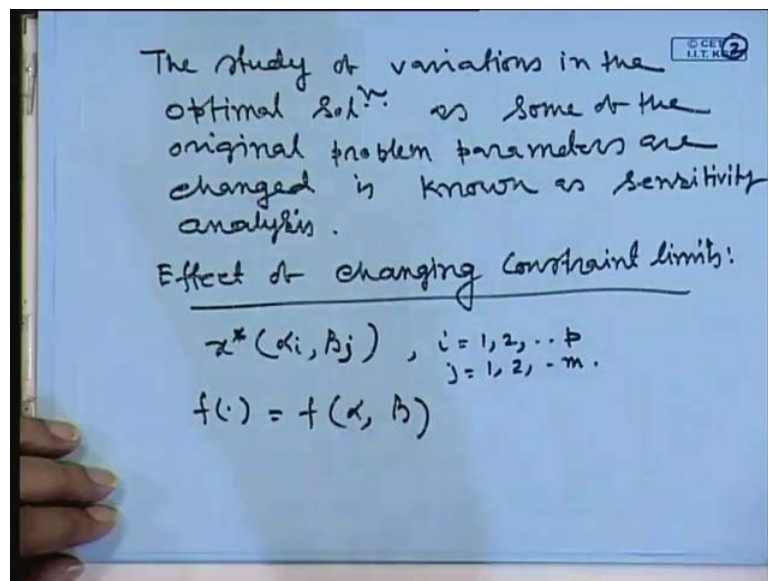 The study of variations in the
optimal Solⁿ. as some of the
original problem parameters are
changed is known as sensitivity
analysis.
Effect of changing constraint limits:
x*(αi, βj) , i = 1, 2, .. p
j = 1, 2, - m.
f(·) = f(α, β)
© CET
I.I.T. K
2